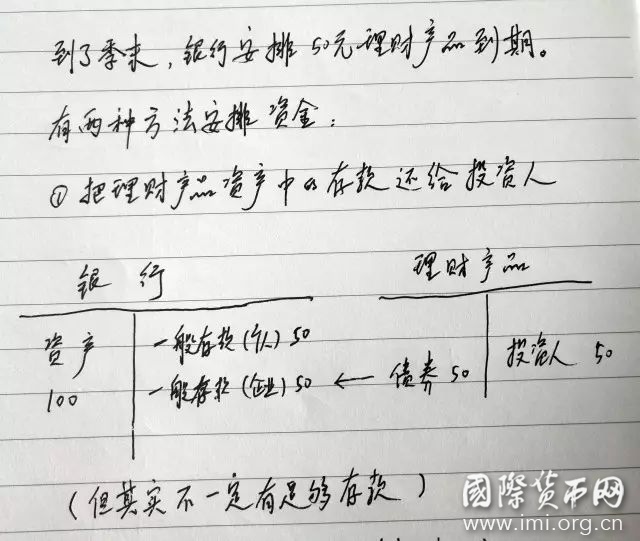 到了季末，银行安排50元理财产品到期。
有两种方法安排资金：
① 把理财产品资产中的存款还给投资人
银行 理财产品
资产 一般存款(个人) 50 投资人 50
100 一般存款(企业) 50 ← 债券 50
(但其实不一定有足够存款)
國際货币网
www.imi.org.cn